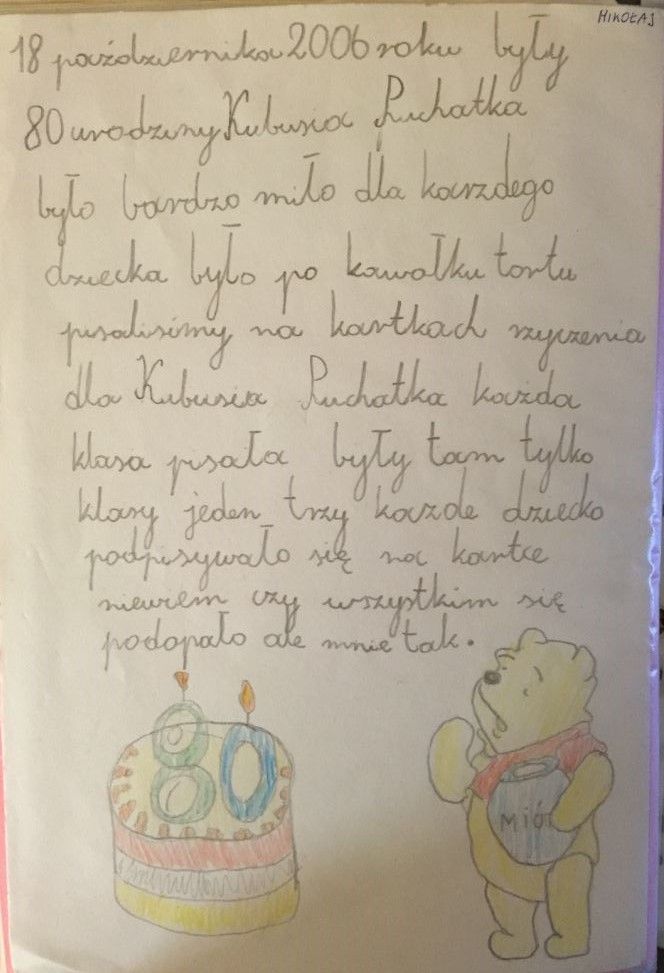 MIKOŁAJ
18 października 2006 roku były
80 urodziny Kubusia Puchatka
było bardzo miło dla karzdego
dziecka było po kawołku tortu
pisalisimy na kartkach rzyczenia
dla Kubusia Puchatka każda
klasa pisała były tam tylko
klasy jeden trzy kazde dziecko
podpisywało się na kartce
niewiem czy wszystkim się
podopało ale mnie tak.
80
MIÓD